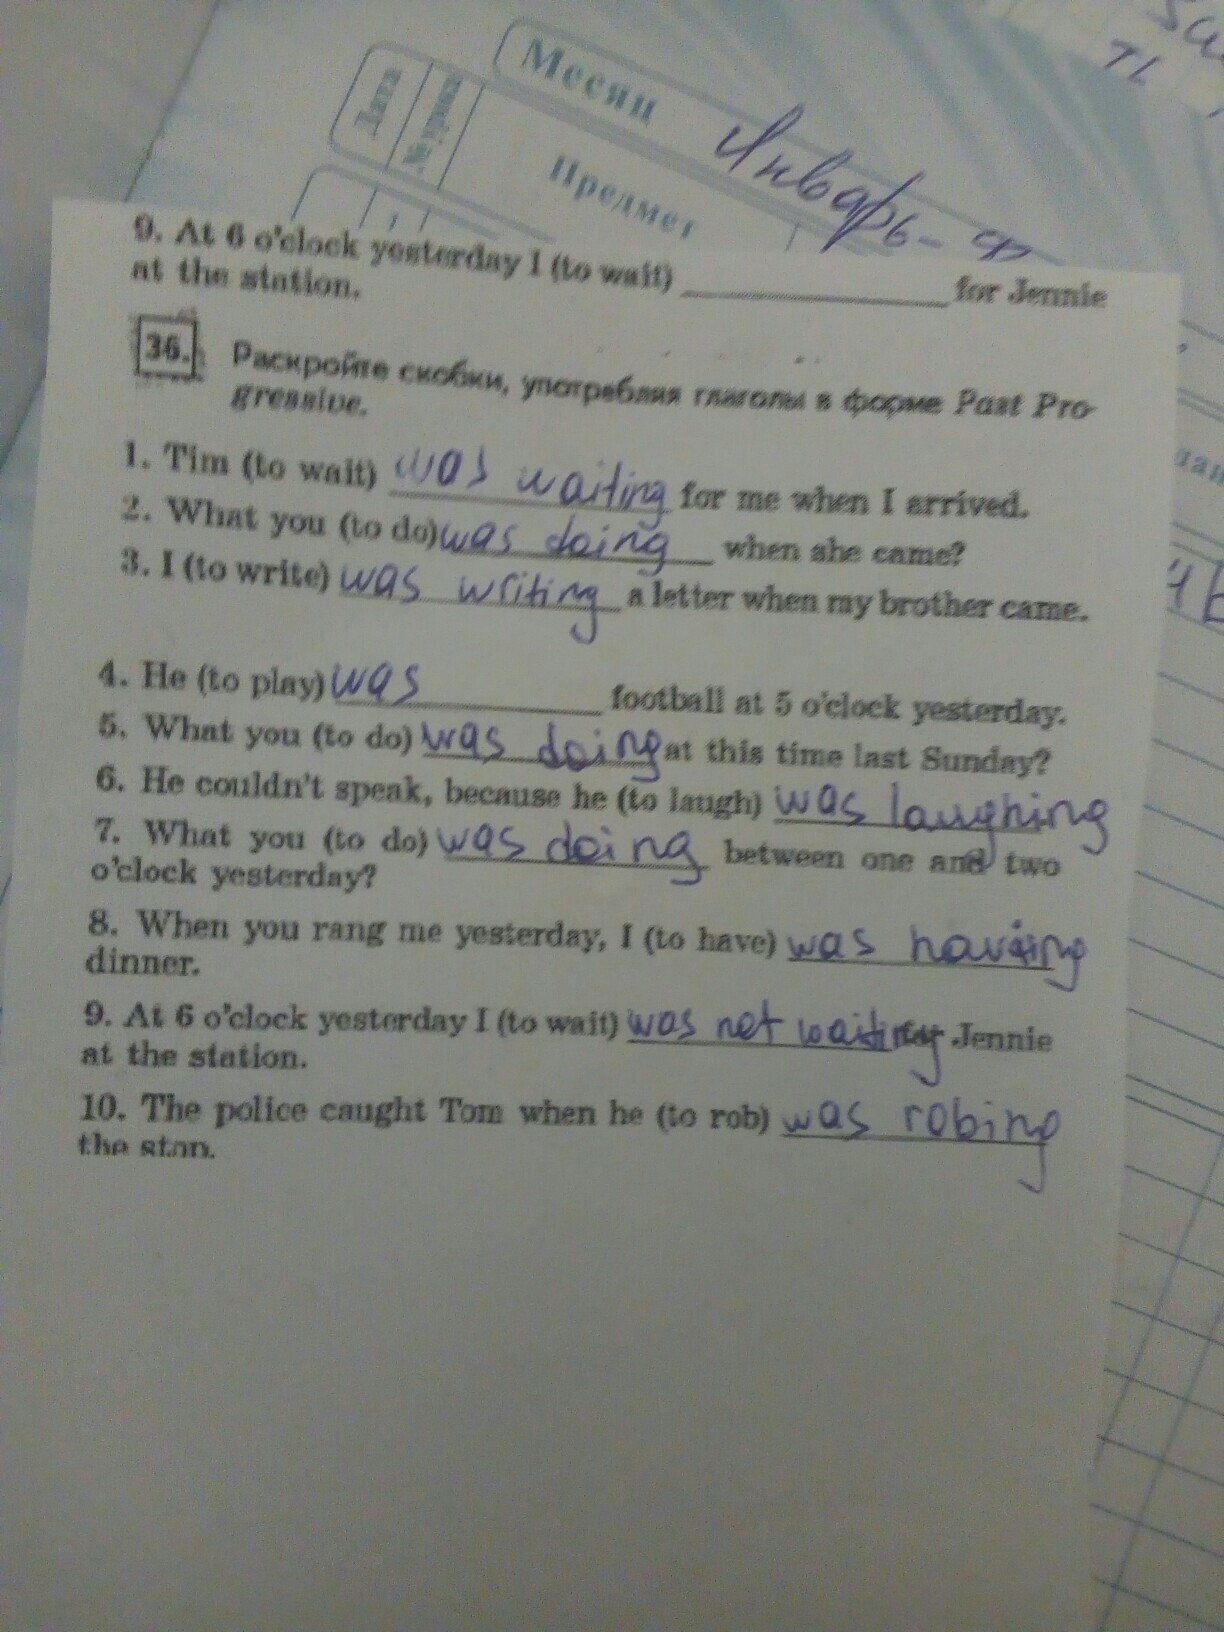 Месяц Январь-
Дата
Предмет
9. At 6 o'clock yesterday I (to wait) ____________ for Jennie
at the station.
36. Раскройте скобки, употребляя глаголы в форме Past Pro-
gressive.
1. Tim (to wait) was waiting for me when I arrived.
2. What you (to do) was doing when she came?
3. I (to write) was writing a letter when my brother came.
4. He (to play) was football at 5 o'clock yesterday.
5. What you (to do) was doing at this time last Sunday?
6. He couldn't speak, because he (to laugh) was laughing
7. What you (to do) was doing between one and two
o'clock yesterday?
8. When you rang me yesterday, I (to have) was having
dinner.
9. At 6 o'clock yesterday I (to wait) was not waiting for Jennie
at the station.
10. The police caught Tom when he (to rob) was robing
the stop.